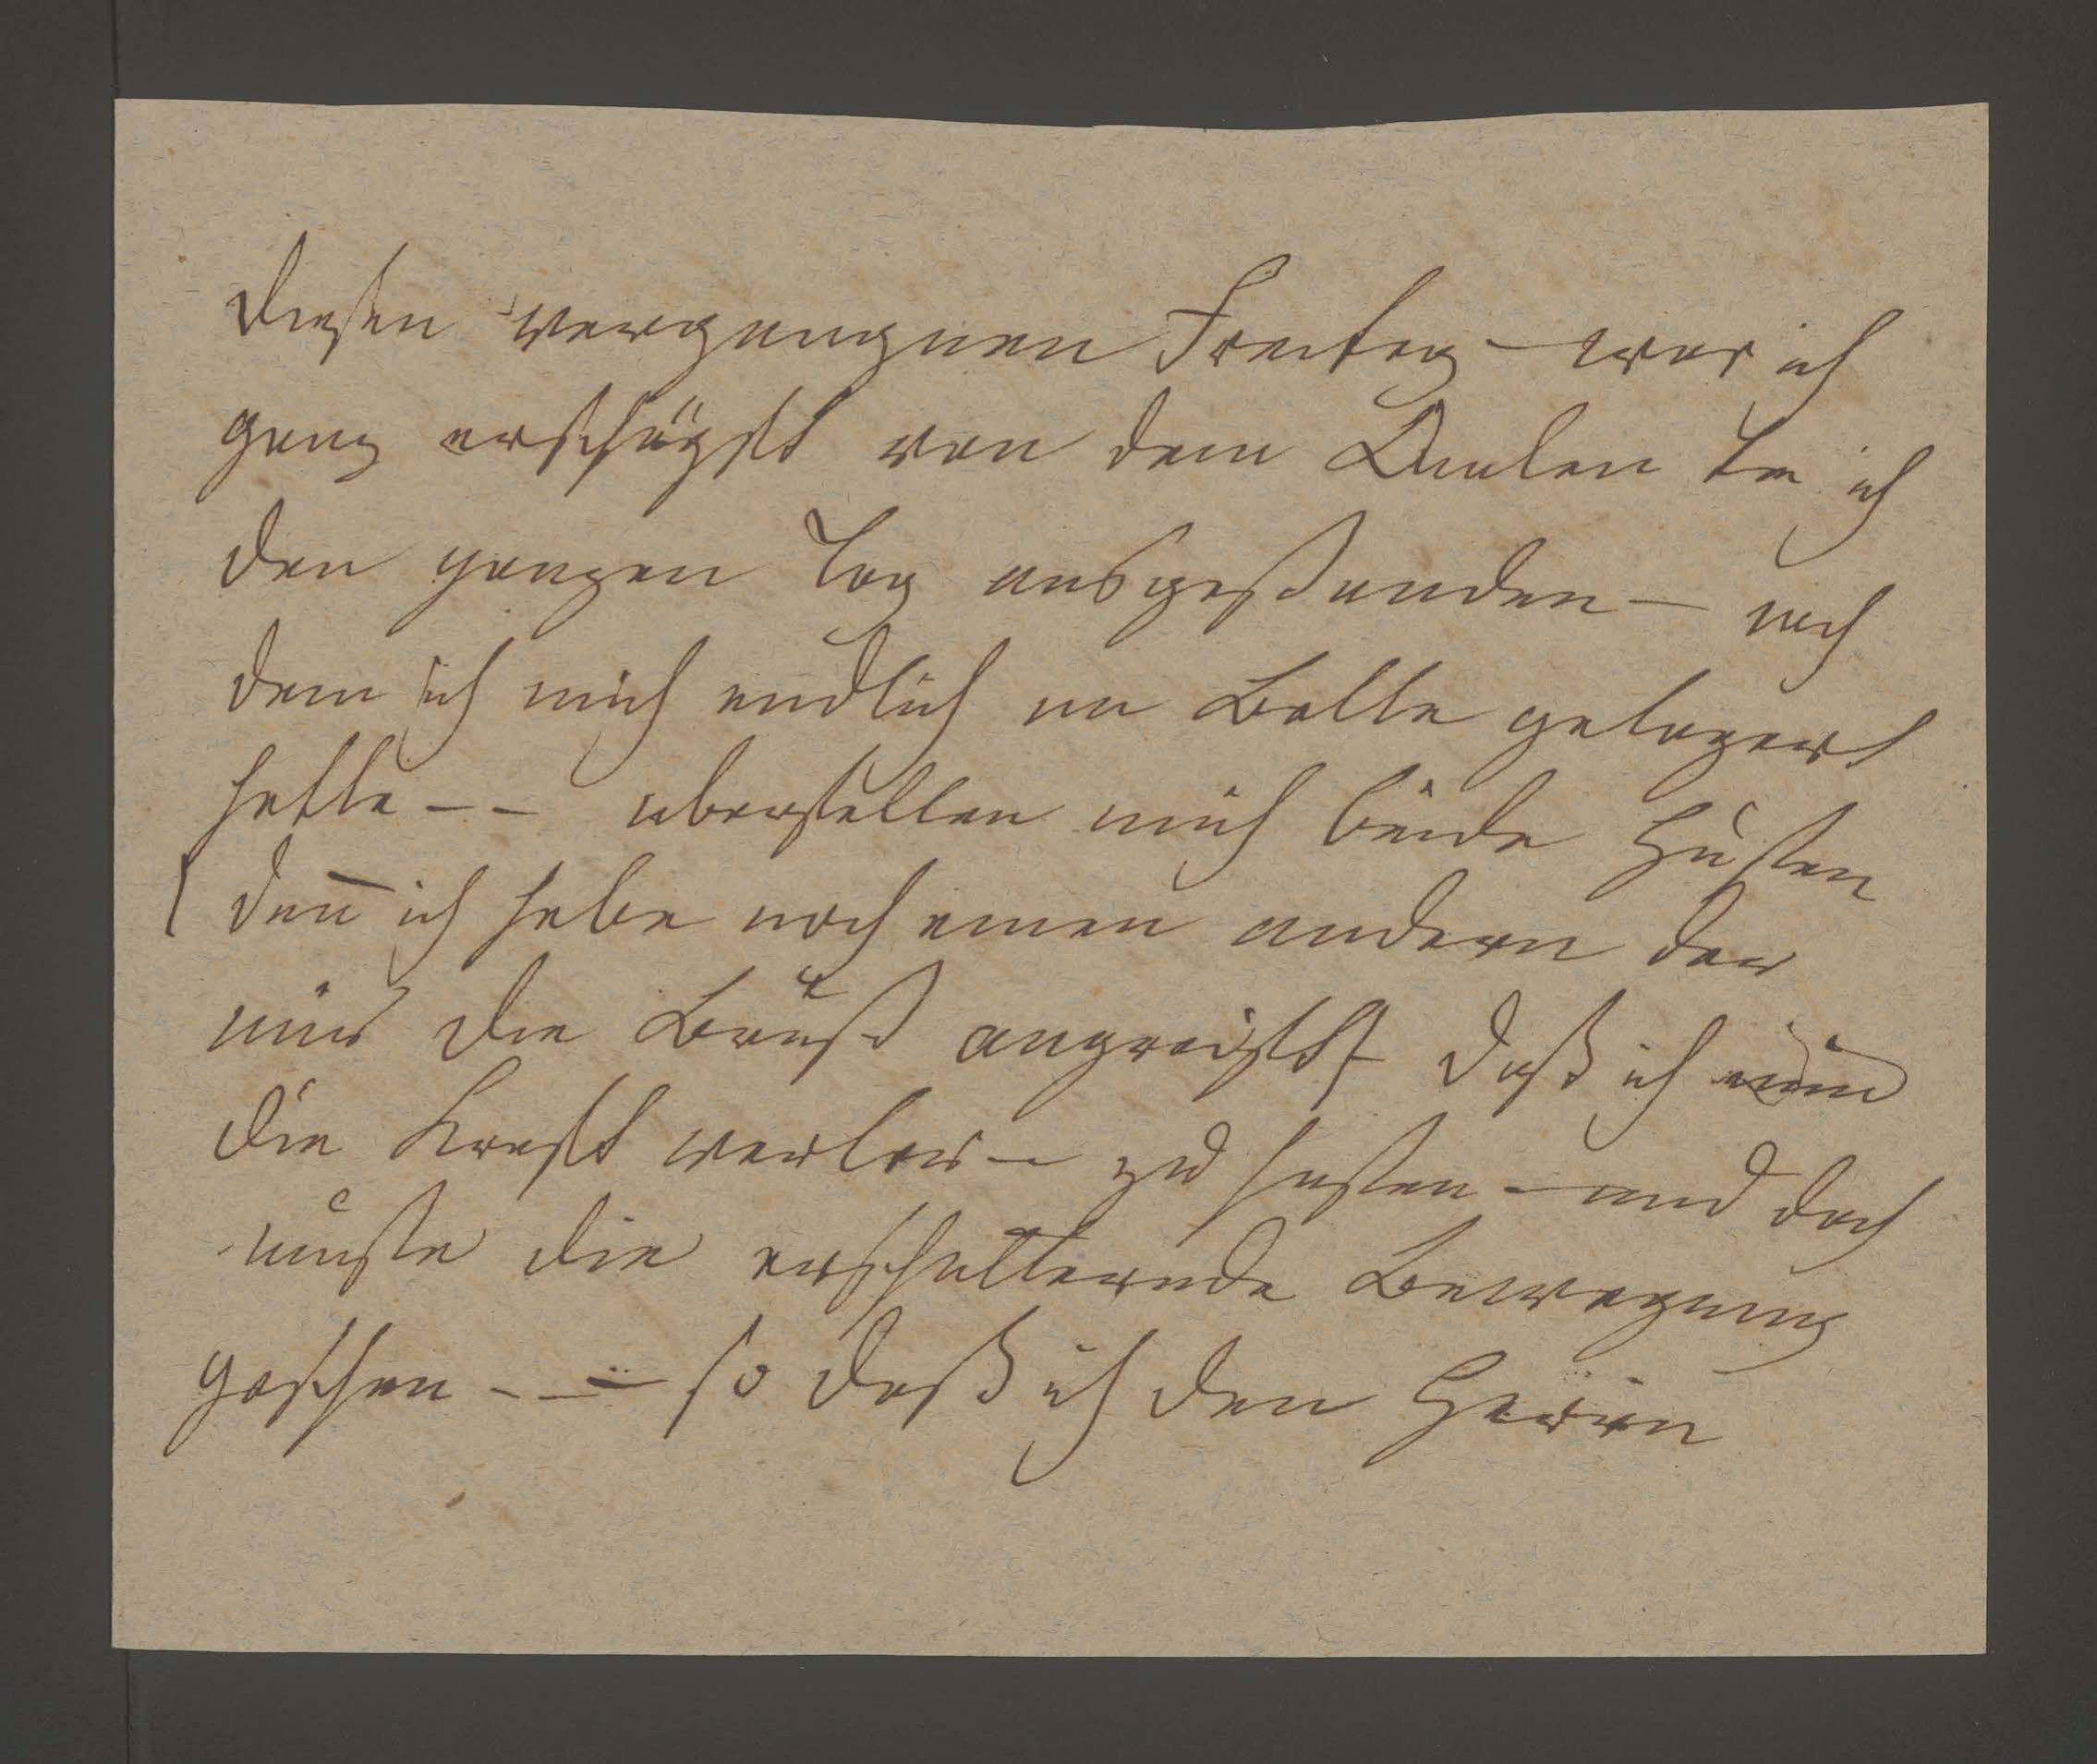 diesen vergangnen Freitag – war ich
ganz erschöpft von dem Qualen die ich
den ganzen Tag ausgestanden – nach
dem ich mich endlich im Bette gelagert
hatte – – uberfiellen mich beide Husten
(den̅ ich habe noch einen andern der
mir die Brust angreift) daß ich nun
die Kraft verlor – zu husten – und doch
muste die erschutternde Bewegung
geschen – – – so daß ich den Herrn